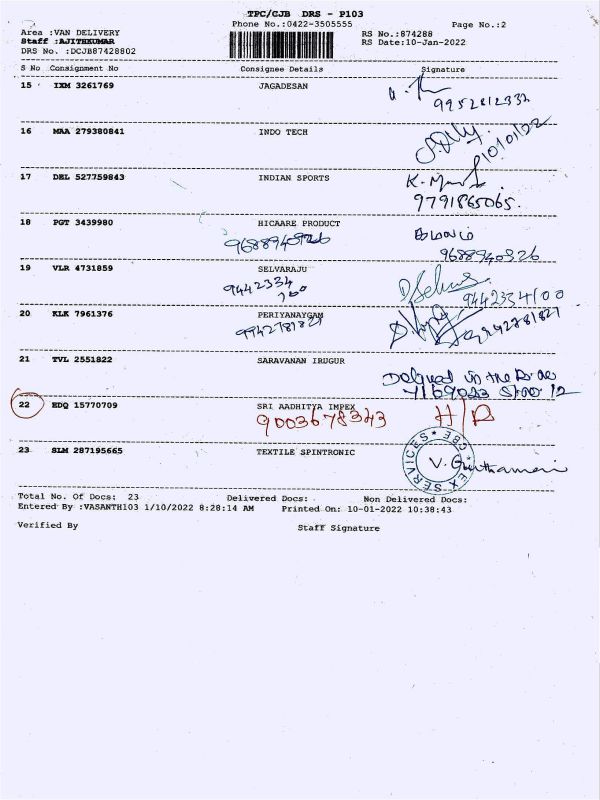 TPC/CJB DRS - P103
Phone No.:0422-3505555
Page No.:2
Area :VAN DELIVERY
RS No.:874288
Staff :AJITHKUMAR
RS Date:10-Jan-2022
DRS No. :DCJB87428802
S No Consignment No Consignee Details Signature
15 IXM 3261769 JAGADESAN
9952812334
16 MAA 279380841 INDO TECH
10/01/22
17 DEL 527759843 INDIAN SPORTS
9791865065.
18 PGT 3439980 HICAARE PRODUCT
9688940926
9688940926
19 VLR 4731859 SELVARAJU
9442334
700
20 KLK 7961376 PERIYANAYGAM
9942781827
21 TVL 2551822 SARAVANAN IRUGUR
in the
22 EDQ 15770709 SRI AADHITYA IMPEX
9003678343
23 SLM 287195665 TEXTILE SPINTRONIC
CBE
SERVICES
Total No. Of Docs: 23 Delivered Docs: Non Delivered Docs:
Entered By :VASANTH103 1/10/2022 8:28:14 AM Printed On: 10-01-2022 10:38:43
Verified By Staff Signature